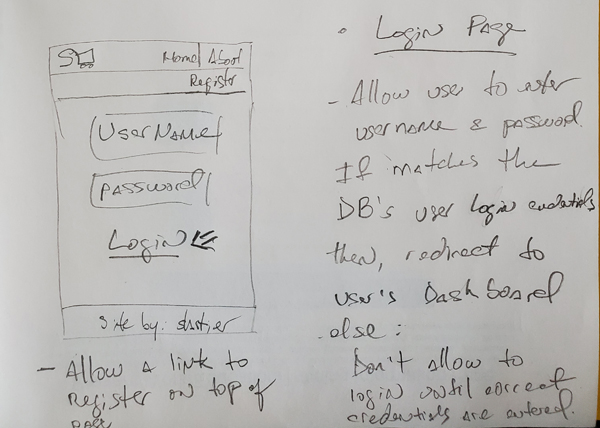 Home | About
Register
UserName
Password
Login
Site by:
- Allow a link to
Register on top of
• Login Page
- Allow user to enter
username & password.
If matches the
DB's user login credentials
then, redirect to
user's Dashboard
else:
Don't allow to
login until correct
credentials are entered.